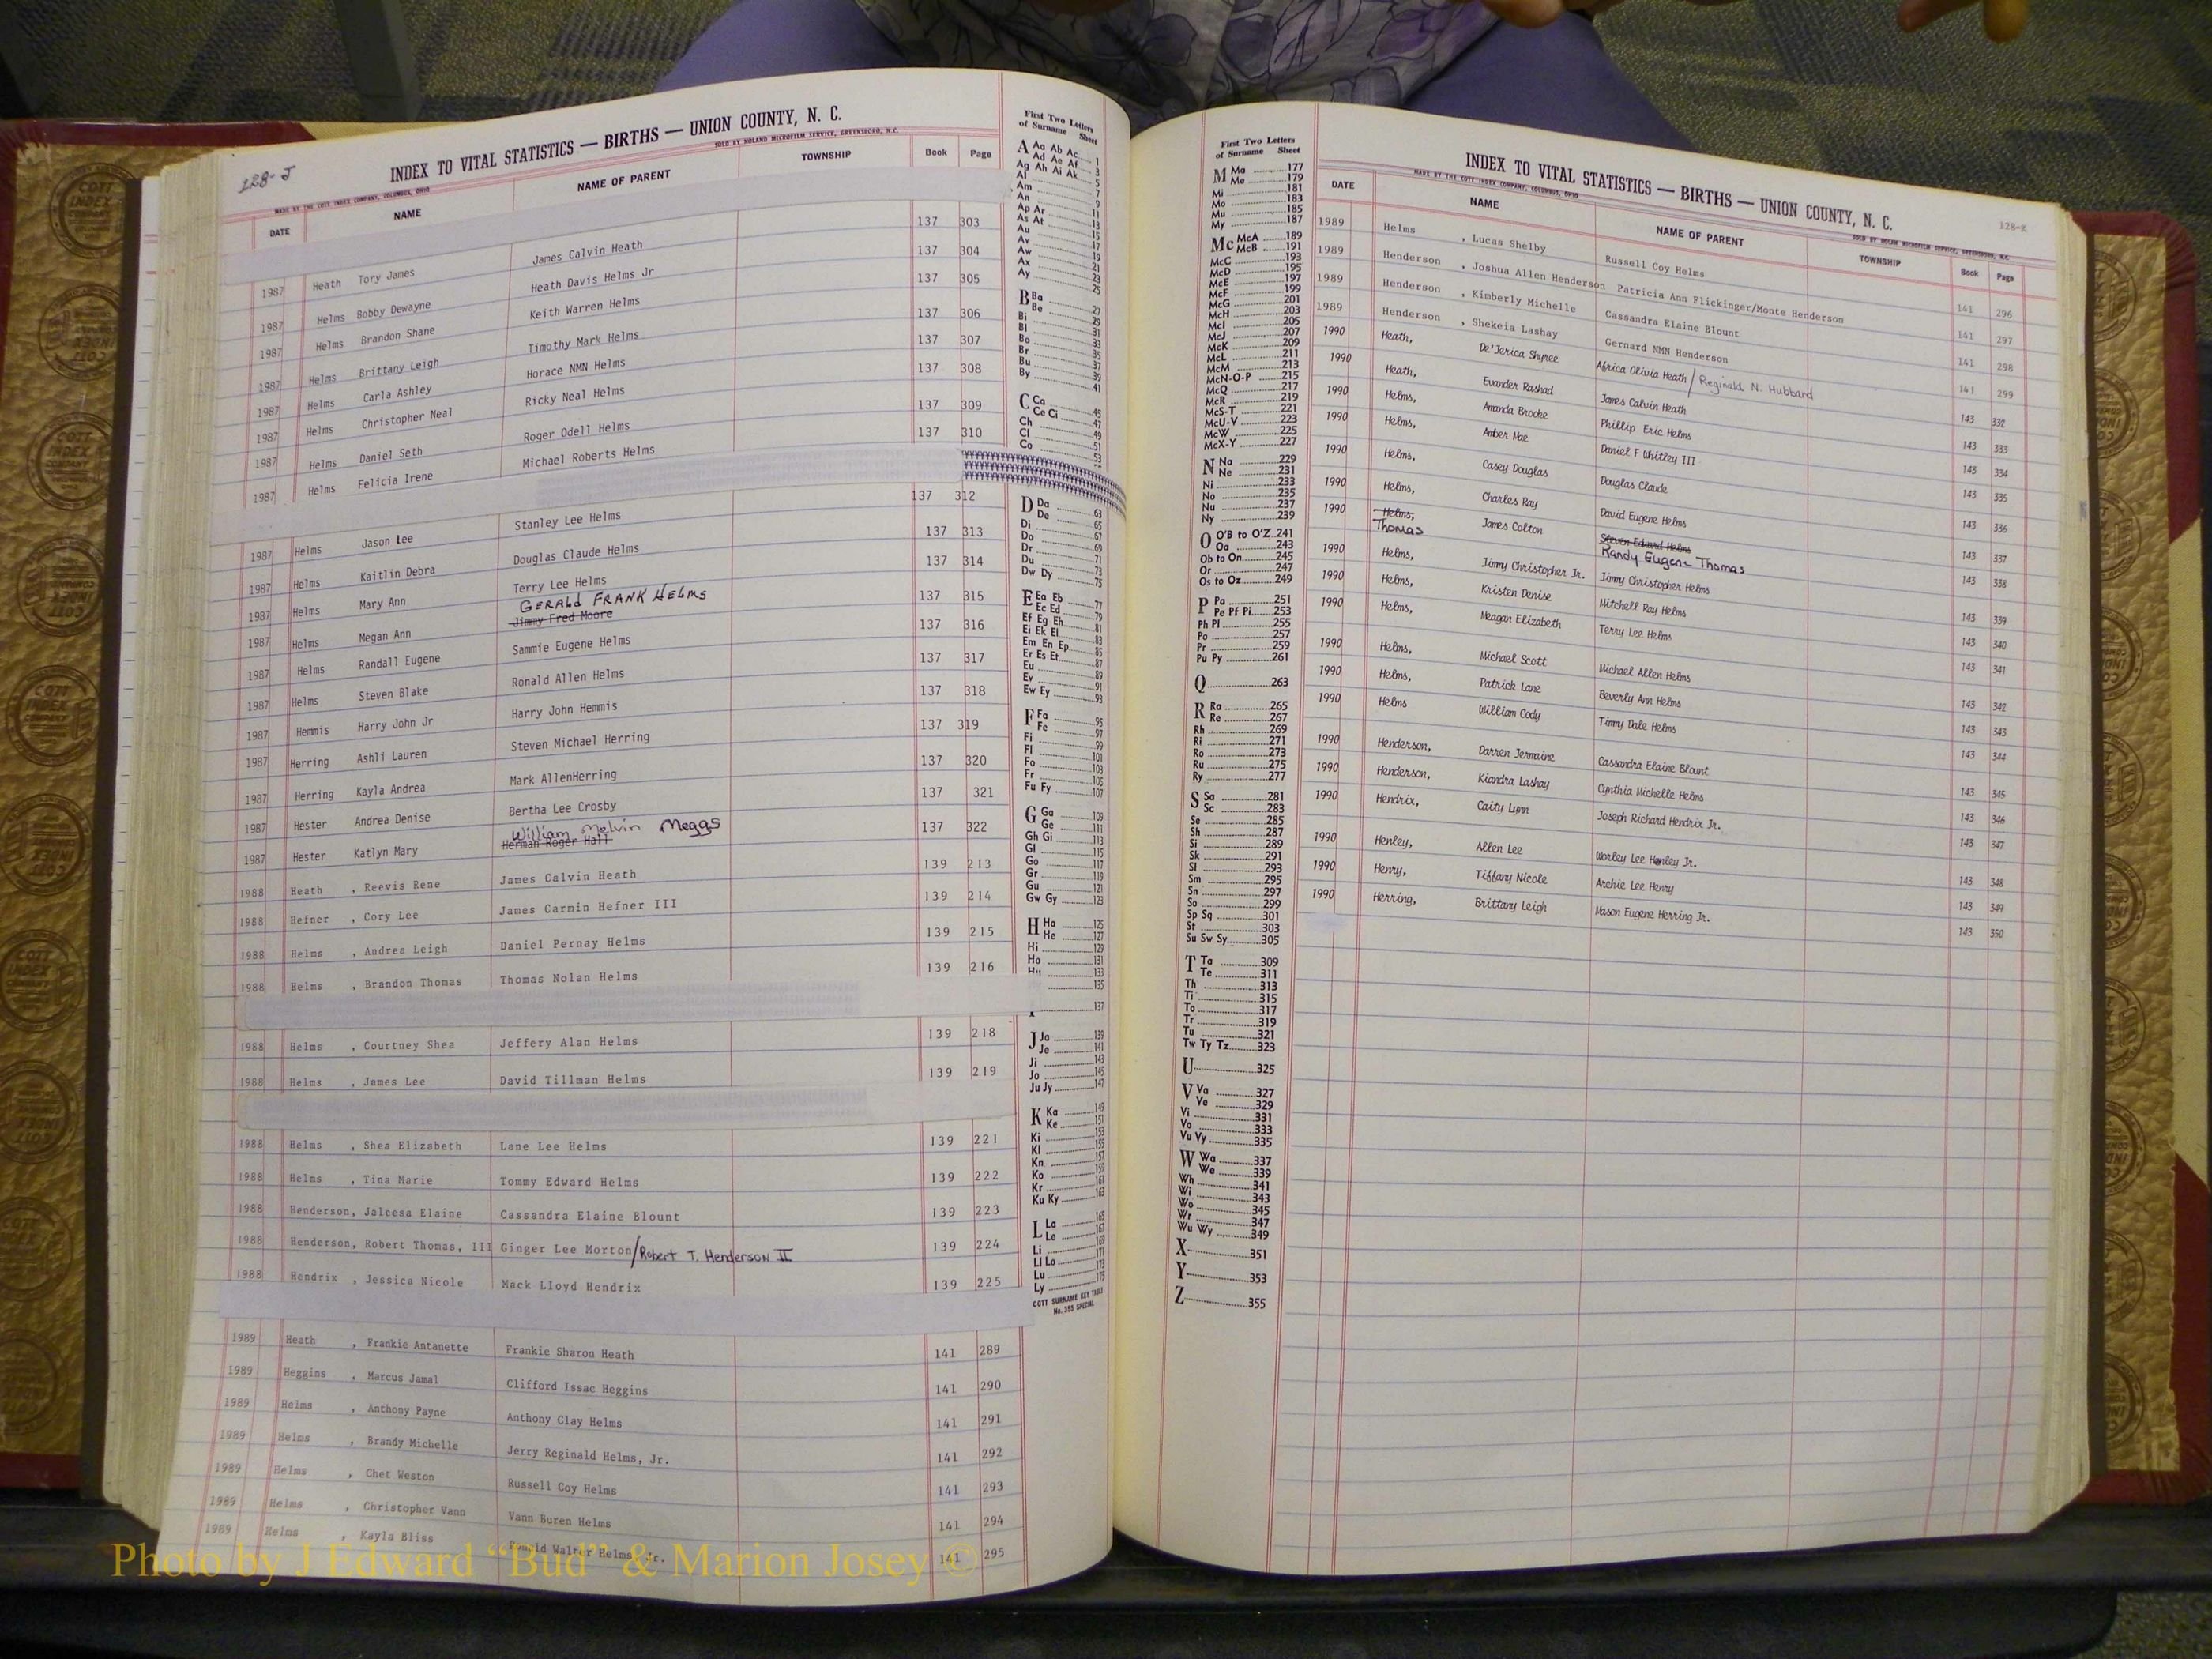 128-J
INDEX TO VITAL STATISTICS — BIRTHS — UNION COUNTY, N. C.
MADE BY THE COTT INDEX COMPANY, COLUMBUS, OHIO SOLD BY NOLAND MICROFILM SERVICE, GREENSBORO, N.C.
DATE NAME NAME OF PARENT TOWNSHIP Book Page
1987 Heath Tory James James Calvin Heath 137 303
1987 Helms Bobby Dewayne Heath Davis Helms Jr 137 304
1987 Helms Brandon Shane Keith Warren Helms 137 305
1987 Helms Brittany Leigh Timothy Mark Helms 137 306
1987 Helms Carla Ashley Horace NMN Helms 137 307
1987 Helms Christopher Neal Ricky Neal Helms 137 308
1987 Helms Daniel Seth Roger Odell Helms 137 309
1987 Helms Felicia Irene Michael Roberts Helms 137 310
1987 Helms Jason Lee Stanley Lee Helms 137 312
1987 Helms Kaitlin Debra Douglas Claude Helms 137 313
1987 Helms Mary Ann Terry Lee Helms 137 314
GERALD FRANK HELMS
1987 Helms Megan Ann Jimmy Fred Moore 137 315
1987 Helms Randall Eugene Sammie Eugene Helms 137 316
1987 Helms Steven Blake Ronald Allen Helms 137 317
1987 Hemmis Harry John Jr Harry John Hemmis 137 318
1987 Herring Ashli Lauren Steven Michael Herring 137 319
1987 Herring Kayla Andrea Mark AllenHerring 137 320
1987 Hester Andrea Denise Bertha Lee Crosby 137 321
William Melvin Meggs
1987 Hester Katlyn Mary Herman Roger Hall 137 322
1988 Heath , Reevis Rene James Calvin Heath 139 213
1988 Hefner , Cory Lee James Carmin Hefner III 139 214
1988 Helms , Andrea Leigh Daniel Pernay Helms 139 215
1988 Helms , Brandon Thomas Thomas Nolan Helms 139 216
1988 Helms , Courtney Shea Jeffery Alan Helms 139 218
1988 Helms , James Lee David Tillman Helms 139 219
1988 Helms , Shea Elizabeth Lane Lee Helms 139 221
1988 Helms , Tina Marie Tommy Edward Helms 139 222
1988 Henderson, Jaleesa Elaine Cassandra Elaine Blount 139 223
1988 Henderson, Robert Thomas, III Ginger Lee Morton/Robert T. Henderson II 139 224
1988 Hendrix , Jessica Nicole Mack Lloyd Hendrix 139 225
1989 Heath , Frankie Antanette Frankie Sharon Heath 141 289
1989 Heggins , Marcus Jamal Clifford Issac Heggins 141 290
1989 Helms , Anthony Payne Anthony Clay Helms 141 291
1989 Helms , Brandy Michelle Jerry Reginald Helms, Jr. 141 292
1989 Helms , Chet Weston Russell Coy Helms 141 293
1989 Helms , Christopher Vann Vann Buren Helms 141 294
1989 Helms , Kayla Bliss Ronald Walter Helms, Jr. 141 295
First Two Letters
of Surname Sheet
A Aa Ab Ac 1
Ad Ae Af 3
Ag Ah Ai Ak 5
Al 7
Am 9
An 11
Ap Ar 13
As At 15
Au 17
Av 19
Aw 21
Ax 23
Ay 25
B Ba 27
Be 29
Bi 31
Bl 33
Bo 35
Br 37
Bu 39
By 41
C Ca 45
Ce Ci 47
Ch 49
Cl 51
Co 53
D Da 63
De 65
Di 67
Do 69
Dr 71
Du 73
Dw Dy 75
E Ea Eb 77
Ec Ed 79
Ef Eg Eh 81
Ei Ek El 83
Em En Ep 85
Er Es Et 87
Eu 89
Ev 91
Ew Ey 93
F Fa 95
Fe 97
Fi 99
Fl 101
Fo 103
Fr 105
Fu Fy 107
G Ga 109
Ge 111
Gh Gi 113
Gl 115
Go 117
Gr 119
Gu 121
Gw Gy 123
H Ha 125
He 127
Hi 129
Ho 131
Hu 133
135
137
J Ja 139
Je 141
Ji 143
Jo 145
Ju Jy 147
K Ka 149
Ke 151
Ki 153
Kl 155
Kn 157
Ko 159
Kr 161
Ku Ky 163
L La 165
Le 167
Li 169
Ll Lo 171
Lu 173
Ly 175
COTT SURNAME KEY TABLE
No. 355 SPECIAL
First Two Letters
of Surname Sheet
M Ma 177
Me 179
Mi 181
Mo 183
Mu 185
My 187
Mc McA 189
McB 191
McC 193
McD 195
McE 197
McF 199
McG 201
McH 203
McI 205
McJ 207
McK 209
McL 211
McM 213
McN-O-P 215
McQ 217
McR 219
McS-T 221
McU-V 223
McW 225
McX-Y 227
N Na 229
Ne 231
Ni 233
No 235
Nu 237
Ny 239
O O'B to O'Z 241
Oa 243
Ob to On 245
Or 247
Os to Oz 249
P Pa 251
Pe Pf Pi 253
Ph Pl 255
Po 257
Pr 259
Pu Py 261
Q 263
R Ra 265
Re 267
Rh 269
Ri 271
Ro 273
Ru 275
Ry 277
S Sa 281
Sc 283
Se 285
Sh 287
Si 289
Sk 291
Sl 293
Sm 295
Sn 297
So 299
Sp Sq 301
St 303
Su Sw Sy 305
T Ta 309
Te 311
Th 313
Ti 315
To 317
Tr 319
Tu 321
Tw Ty Tz 323
U 325
V Va 327
Ve 329
Vi 331
Vo 333
Vu Vy 335
W Wa 337
We 339
Wh 341
Wi 343
Wo 345
Wr 347
Wu Wy 349
X 351
Y 353
Z 355
INDEX TO VITAL STATISTICS — BIRTHS — UNION COUNTY, N. C.
128-K
MADE BY THE COTT INDEX COMPANY, COLUMBUS, OHIO SOLD BY NOLAN MICROFILM SERVICE, GREENSBORO, N.C.
DATE NAME NAME OF PARENT TOWNSHIP Book Page
1989 Helms , Lucas Shelby Russell Coy Helms 141 296
1989 Henderson , Joshua Allen Henderson Patricia Ann Flickinger/Monte Henderson 141 297
1989 Henderson , Kimberly Michelle Cassandra Elaine Blount 141 298
1989 Henderson , Shekeia Lashay Gernard NMN Henderson 141 299
1990 Heath, De'Jerica Shyree Africa Olivia Heath / Reginald N. Hubbard 143 332
1990 Heath, Evander Rashad James Calvin Heath 143 333
1990 Helms, Amanda Brooke Phillip Eric Helms 143 334
1990 Helms, Amber Mae Daniel F Whitley III 143 335
1990 Helms, Casey Douglas Douglas Claude 143 336
1990 Helms, Charles Ray David Eugene Helms 143 337
1990 Helms, James Colton Steven Edward Helms 143 338
Thomas Randy Eugene Thomas
1990 Helms, Jimmy Christopher Jr. Jimmy Christopher Helms 143 339
1990 Helms, Kristen Denise Mitchell Ray Helms 143 340
1990 Helms, Meagan Elizabeth Terry Lee Helms 143 341
1990 Helms, Michael Scott Michael Allen Helms 143 342
1990 Helms, Patrick Lane Beverly Ann Helms 143 343
1990 Helms William Cody Timmy Dale Helms 143 344
1990 Henderson, Darren Jermaine Cassandra Elaine Blount 143 345
1990 Henderson, Kiandra Lashay Cynthia Michelle Helms 143 346
1990 Hendrix, Caity Lynn Joseph Richard Hendrix Jr. 143 347
1990 Henley, Allen Lee Worley Lee Henley Jr. 143 348
1990 Henry, Tiffany Nicole Archie Lee Henry 143 349
1990 Herring, Brittany Leigh Mason Eugene Herring Jr. 143 350
Photo by J Edward “Bud” & Marion Josey ©